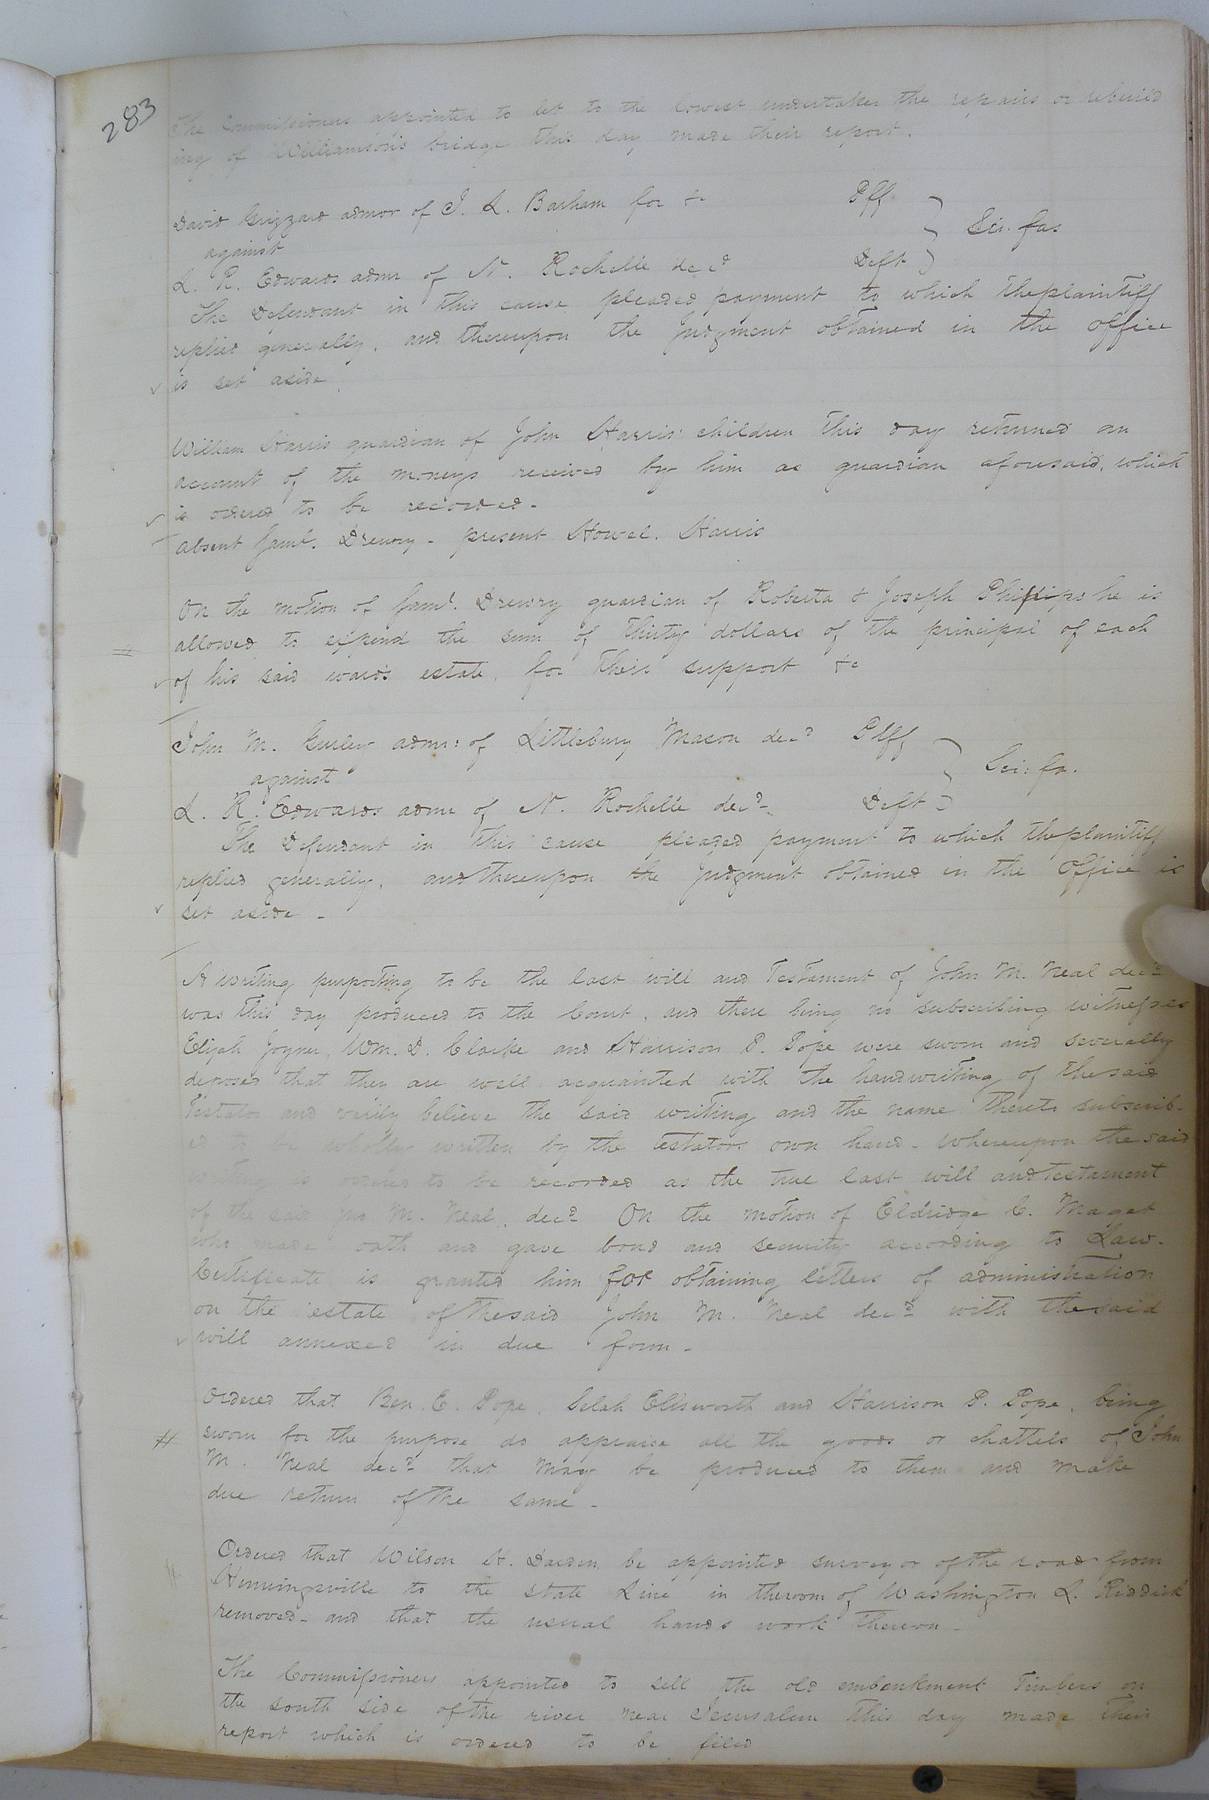 283
The Commissioners appointed to let to the lowest undertaker the repairs or rebuild
ing of Williamson's bridge this day made their report.
David Grizzard admor of J. L. Barham for &c Plff.
against Sci. fas
L. R. Edwards admr of N. Rochelle decd Deft
The Defendant in this cause pleaded payment to which the plaintiff
replied generally, and thereupon the Judgment obtained in the office
is set aside.
William Harris guardian of John Harris' children this day returned an
account of the moneys received by him as guardian aforesaid, which
is ordered to be recorded -
absent Saml. Drewry - present Howel. Harris
On the motion of Saml. Drewry guardian of Roberta & Joseph Phillips he is
allowed to expend the sum of thirty dollars of the principal of each
of his said ward's estate, for their support &c
John M. Gurley admr: of Littlebury Mason decd Plff
against Sci: fa.
L. R. Edwards admr of N. Rochelle decd - Deft
The Defendant in this cause pleaded payment to which the plaintiff
replied generally, and thereupon the Judgment obtained in the Office is
set aside -
A writing purporting to be the last will and Testament of John M. Neal decd
was this day produced to the Court, and there being no subscribing witnesses
Elijah Joyner, Wm. D. Clarke and Harrison P. Pope were sworn and severally
deposed that they are well acquainted with the handwriting of the said
Testator and verily believe the said writing and the name thereto subscrib-
ed to be wholly written by the testators own hand - Whereupon the said
writing is ordered to be recorded as the true last will and testament
of the said Jno M. Neal, decd On the motion of Eldridge C. Maget
who made oath and gave bond and security according to Law.
Certificate is granted him for obtaining letters of administration
on the estate of the said John M. Neal decd with the said
will annexed in due form -
Ordered that Ben. E. Pope, Selah Ellsworth and Harrison P. Pope, being
sworn for the purpose do appraise all the goods or chattels of John
M. Neal decd that may be produced to them and make
due return of the same -
Ordered that Wilson H. Darden be appointed surveyor of the road from
Hunningsville to the State Line in the room of Washington L. Riddick
removed - and that the usual hands work thereon -
The Commissioners appointed to sell the old embankment Timbers on
the south side of the river near Jerusalem this day made their
report which is ordered to be filed